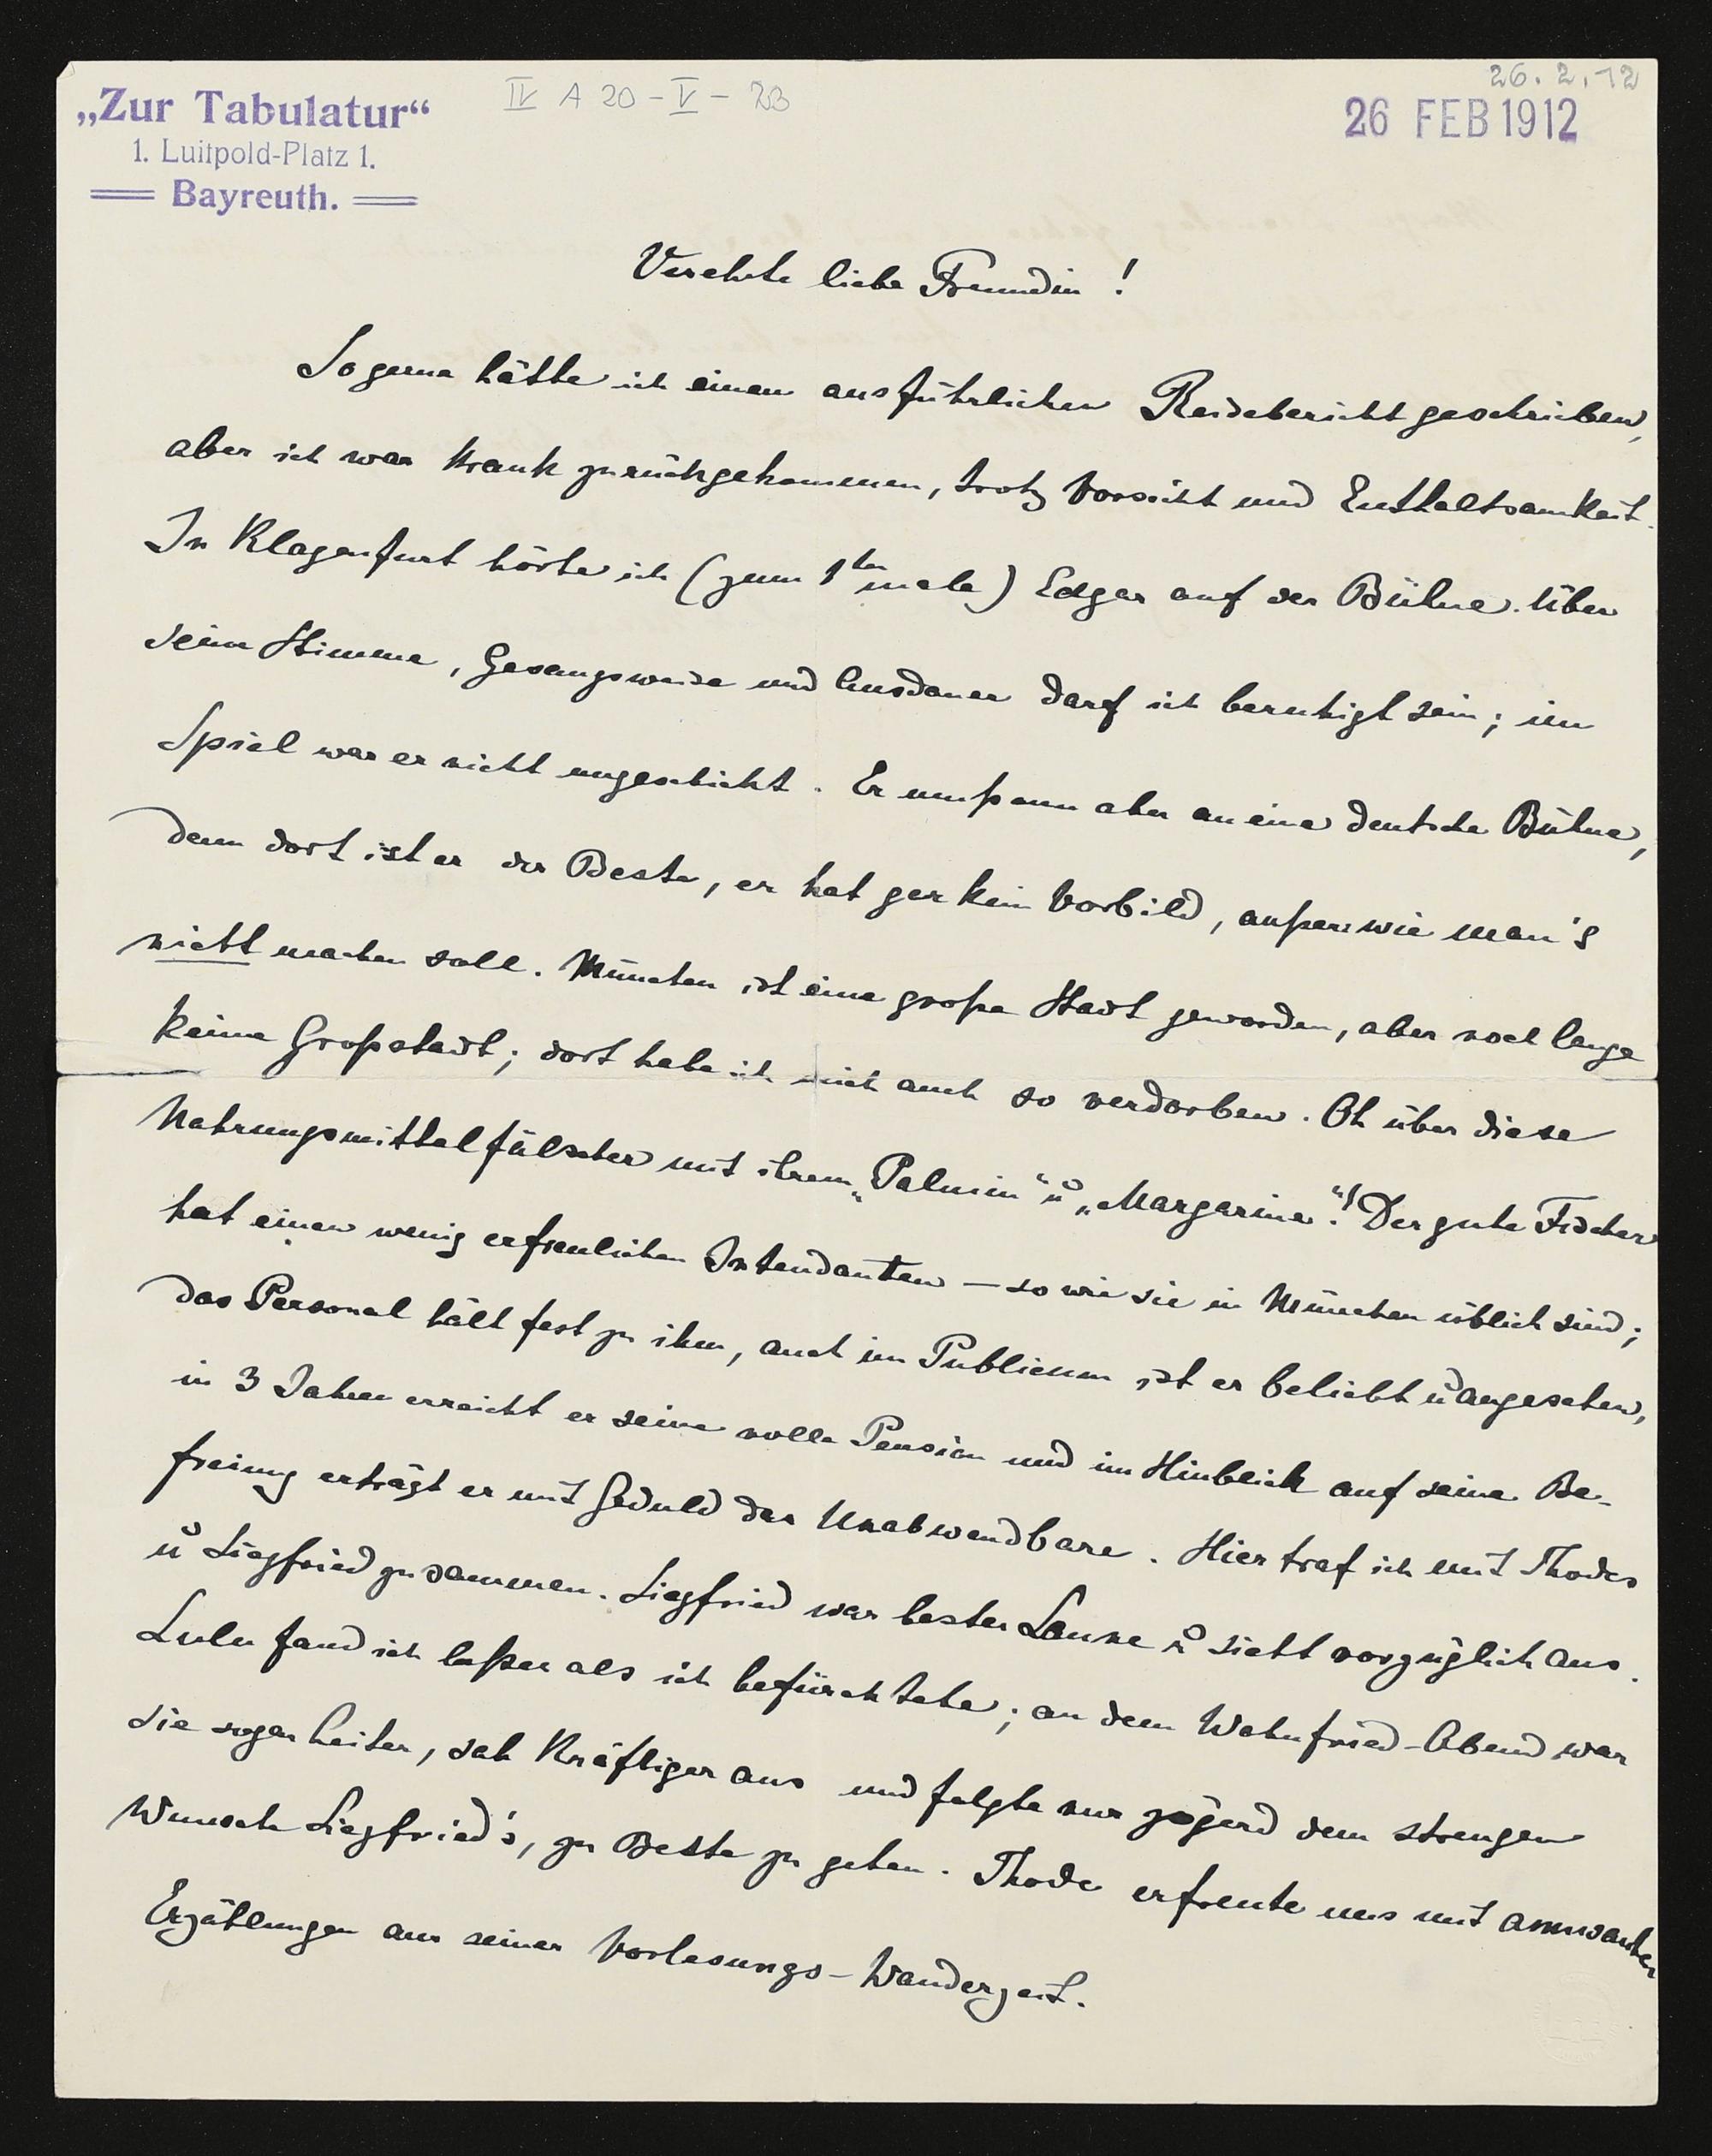 „Zur Tabulatur“
1. Luitpold-Platz 1.
Bayreuth.
IV A 20 - V - 23
26. 2. 12
26 FEB 1912
Verehrte liebe Freundin !
So gerne hätte ich einen ausführlichen Reisebericht geschrieben,
aber ich war krank zurückgekommen, trotz Vorsicht und Enthaltsamkeit.
In Klagenfurt hörte ich (zum 1ten male) Edgar auf der Bühne. Über
seine Stimme, Gesangsweise und Ausdauer darf ich beruhigt sein; im
Spiel war er nicht ungeschickt. Er muß nun aber an eine deutsche Bühne,
denn dort ist er der Beste, er hat gar kein Vorbild, außer wie man's
nicht machen soll. München ist eine große Stadt geworden, aber noch lange
keine Großstadt; dort habe ich mich auch so verdorben. Oh über diese
Nahrungsmittelfälscher mit ihrem „Palmin“ u „Margarine“! Der gute Fischer
hat einen wenig erfreulichen Intendanten – so wie sie in München üblich sind;
das Personal hält fest zu ihm, auch im Publicum ist er beliebt u angesehen,
in 3 Jahren erreicht er seine volle Pension und im Hinblick auf seine Be-
freiung erträgt er mit Geduld das Unabwendbare. Hier traf ich mit Thodes
u Siegfried zusammen. Siegfried war bester Laune u sieht vorzüglich aus.
Lulu fand ich beßer als ich befürchtete; an dem Wahnfried-Abend war
sie sogar heiter, sah kräftiger aus und folgte nur zögerd dem strengen
Wunsche Siegfried's, zu Bette zu gehen. Thode erfreute uns mit amusanten
Erzählungen aus seiner Vorlesungs-Wanderzeit.